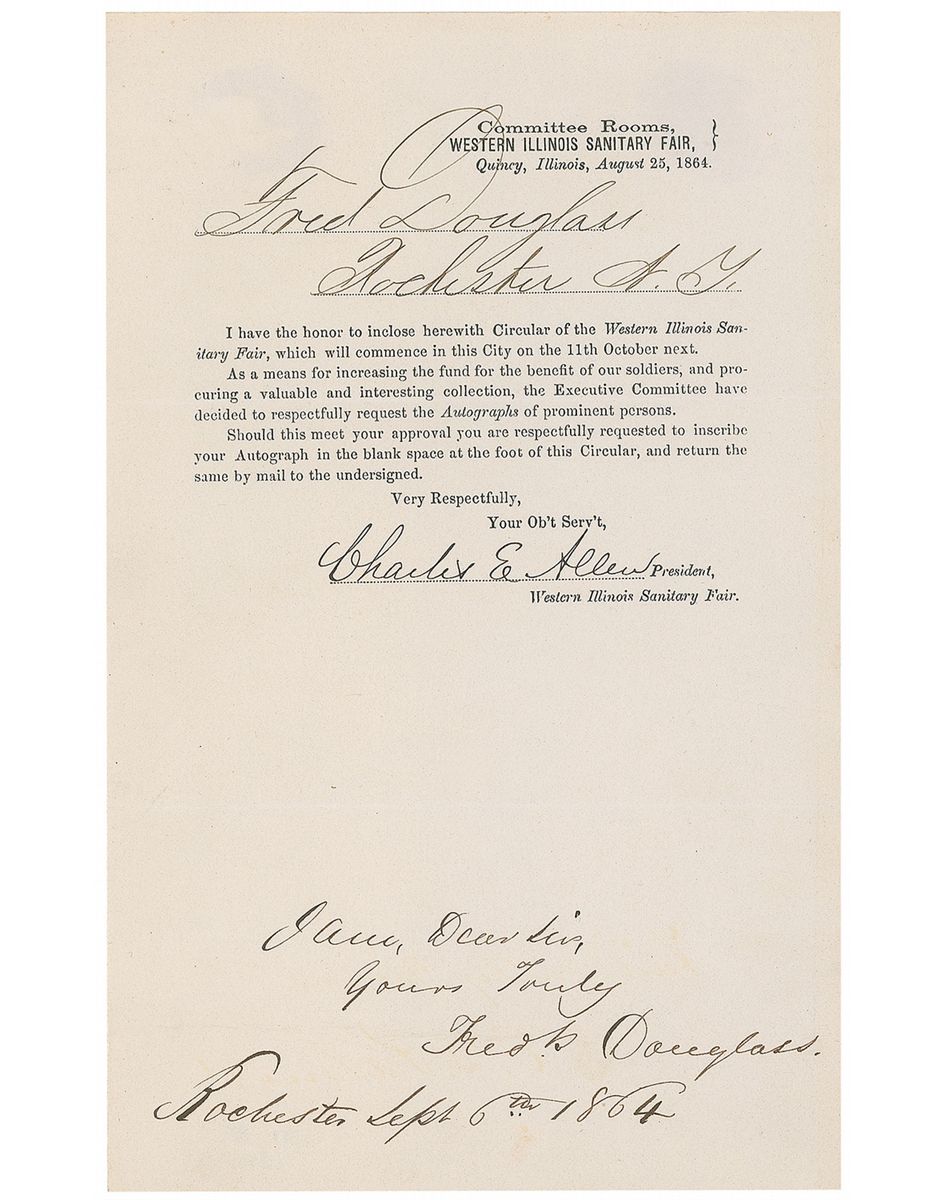 Committee Rooms,
WESTERN ILLINOIS SANITARY FAIR,
Quincy, Illinois, August 25, 1864.
Fred Douglass
Rochester N. Y.
I have the honor to inclose herewith Circular of the Western Illinois San-
itary Fair, which will commence in this City on the 11th October next.
As a means for increasing the fund for the benefit of our soldiers, and pro-
curing a valuable and interesting collection, the Executive Committee have
decided to respectfully request the Autographs of prominent persons.
Should this meet your approval you are respectfully requested to inscribe
your Autograph in the blank space at the foot of this Circular, and return the
same by mail to the undersigned.
Very Respectfully,
Your Ob't Serv't,
Charles E Allen President,
Western Illinois Sanitary Fair.
I am, Dear Sir,
Yours Truly
Fredk Douglass.
Rochester Sept 6th 1864